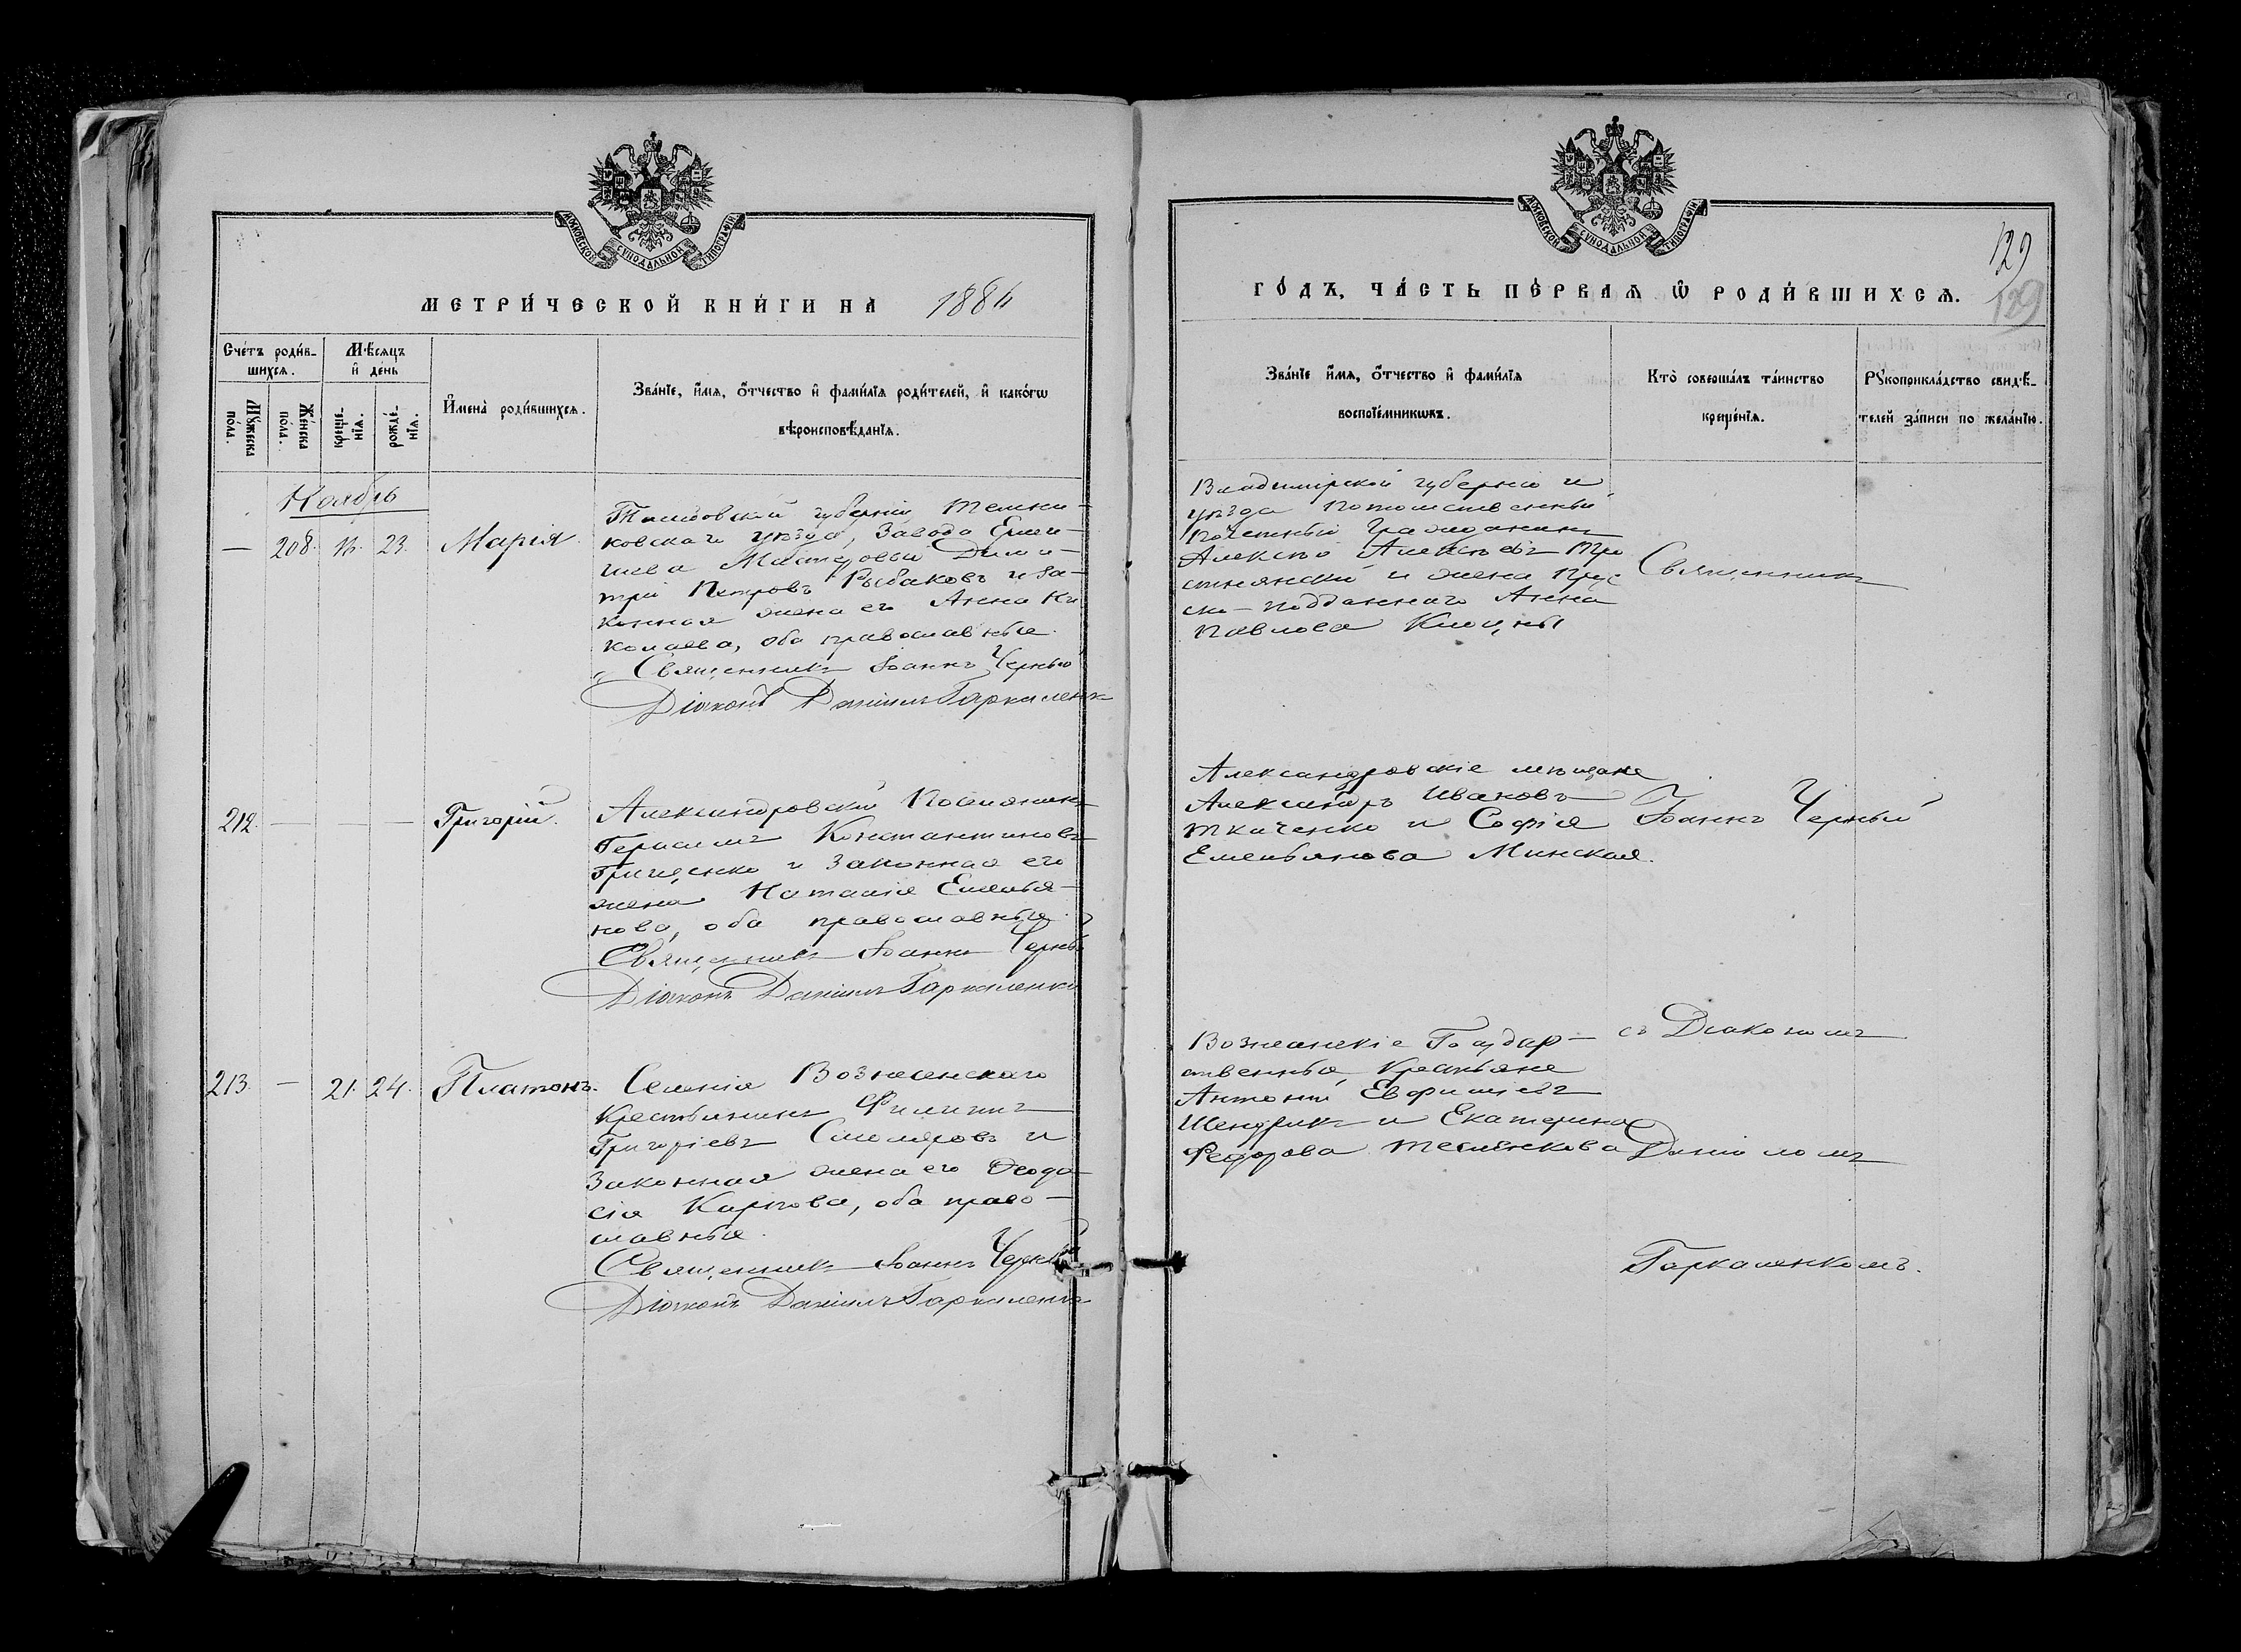 МОСКОВСКОЙ СѴНОДАЛЬНОЙ ТИПОГРАФІИ
МЕТРИ́ЧЕСКОЙ КНИ́ГИ НА̀ 1884
Сче́тъ роди́в-
шихсѧ.
Мѣ́сѧцъ
и҆ де́нь
Мꙋ́жеска
пола.
Же́нска
пола.
креще́-
нїѧ.
рожде́-
нїѧ.
И҆мена̀ роди́вшихсѧ.
Зва́нїе, и҆́мѧ, ѻ҆́тчество и҆ фами́лїѧ роди́телей, и҆ како́гѡ
вѣроисповѣ́данїѧ.
Ноябрь
— 208. 23. Марія
Тамбовской губерніи Темни-
ковскаго уѣзда, Завода Ерми-
шева Мастеровый Дими-
трій Петровъ Рыбаковъ и за-
конная жена его Анна Ни
колаева, оба православные.
Священникъ Іоаннъ Черный
Діаконъ Даніилъ Гаркаленко
212. — — — Григорій.
Александровскій Поселянинъ
Герасимъ Константиновъ
Грищенко и законная его
жена Наталія Емелья-
нова, оба православные.
Священникъ Іоаннъ Черный
Діаконъ Даніилъ Гаркаленко
213. — 21. 24. Платонъ.
Селенія Вознесенскаго
Крестьянинъ Филиппъ
Григорьевъ Столяровъ и
Законная жена его Ѳеодо
сія Карпова, оба право-
славные.
Священникъ Іоаннъ Черный
Діаконъ Даніилъ Гаркаленко
МОСКОВСКОЙ СѴНОДАЛЬНОЙ ТИПОГРАФІИ
129
129
ГО́ДЪ, ЧА́СТЬ ПЕ́РВАѦ Ѡ҆ РОДИ́ВШИХСѦ.
Зва́нїе и҆́мѧ, ѻ҆́тчество и҆ фами́лїѧ
воспрїе́мникѡвъ.
Кто̀ соверша́лъ та́инство
креще́нїѧ.
Рꙋкоприкла́дство свидѣ́-
телей за́писи по жела́нїю.
Владимірской губерніи и
уѣзда Потомственный
Почетный Гражданинъ
Алексѣй Алексѣевъ Тро
стянскій и жена Прус
ско-подданнаго Анна
Павлова
Священникъ
Александровскіе мѣщане
Александръ Ивановъ
Ткаченко и Софія
Емельянова Минская.
Іоаннъ Черный
Вознесенскіе Государ-
ственные Крестьяне
Антоній Евфиміевъ
Шендрикъ и Екатерина
Федорова Теслѣнкова
съ Діакономъ
Даніиломъ
Гаркаленкомъ.